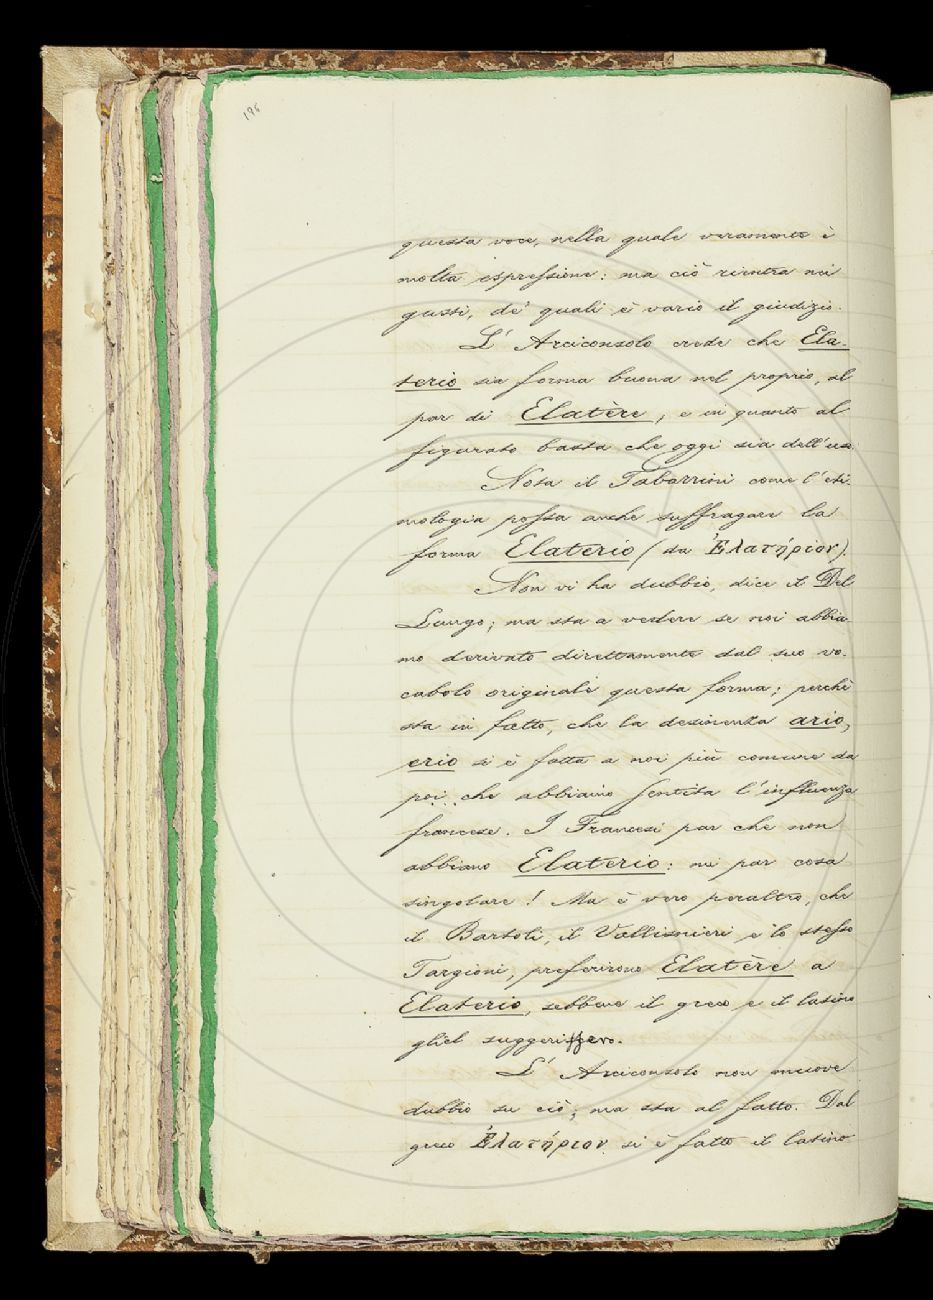 196
questa voce, nella quale veramente è
molta espressione: ma ciò rientra nei
gusti, de' quali è vario il giudizio.
L' Arciconsolo crede che Ela-
terio sia forma buona nel proprio, al
par di Elatère, e in quanto al
figurato basta che oggi sia dell'uso.
Nota il Tabarrini come l'eti-
mologia possa anche suffragare la
forma Elaterio (da Ἐλατήριον).
Non vi ha dubbio, dice il Del
Lungo; ma sta a vedere se noi abbia-
mo derivato direttamente dal suo vo-
cabolo originale questa forma; perchè
sta in fatto, che la desinenza ario,
erio si è fatta a noi più comune da
poi che abbiamo sentita l'influenza
francese. I Francesi par che non
abbiano Elaterio: mi par cosa
singolare! Ma è vero peraltro, che
il Bartoli, il Vallisnieri e lo stesso
Targioni, preferirono Elatère a
Elaterio, sebbene il greco e il latino
gliel suggerissero.
L' Arciconsolo non muove
dubbio su ciò; ma sta al fatto. Dal
greco Ἐλατήριον si è fatto il latino